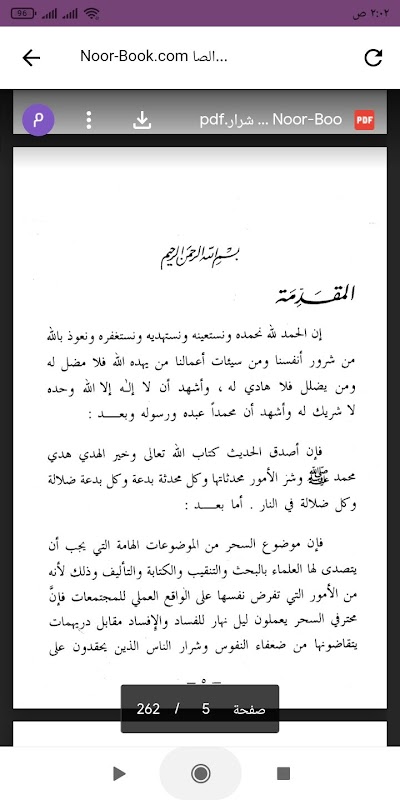 ٢:٠٢ ص
96
Noor-Book.com الصا...
Noor-Boo ... شرار.pdf
PDF
م
بسم الله الرحمن الرحيم
المقدمة
إن الحمد لله نحمده ونستعينه ونستهديه ونستغفره ونعوذ بالله
من شرور أنفسنا ومن سيئات أعمالنا من يهده الله فلا مضل له
ومن يضلل فلا هادي له ، وأشهد أن لا إلـه إلا الله وحده
لا شريك له وأشهد أن محمداً عبده ورسوله وبعـــد :
فإن أصدق الحديث كتاب الله تعالى وخير الهدي هدي
محمد ﷺ وشر الأمور محدثاتها وكل محدثة بدعة وكل بدعة ضلالة
وكل ضلالة في النار . أما بعـــد :
فإن موضوع السحر من الموضوعات الهامة التي يجب أن
يتصدى لها العلماء بالبحث والتنقيب والكتابة والتأليف وذلك لأنه
من الأمور التي تفرض نفسها على الواقع العملي للمجتمعات فإنَّ
محترفي السحر يعملون ليل نهار للفساد والإفساد مقابل دريهمات
يتقاضونها من ضعفاء النفوس وشرار الناس الذين يحقدون على
ـ ٥ ـ
صفحة 5 / 262